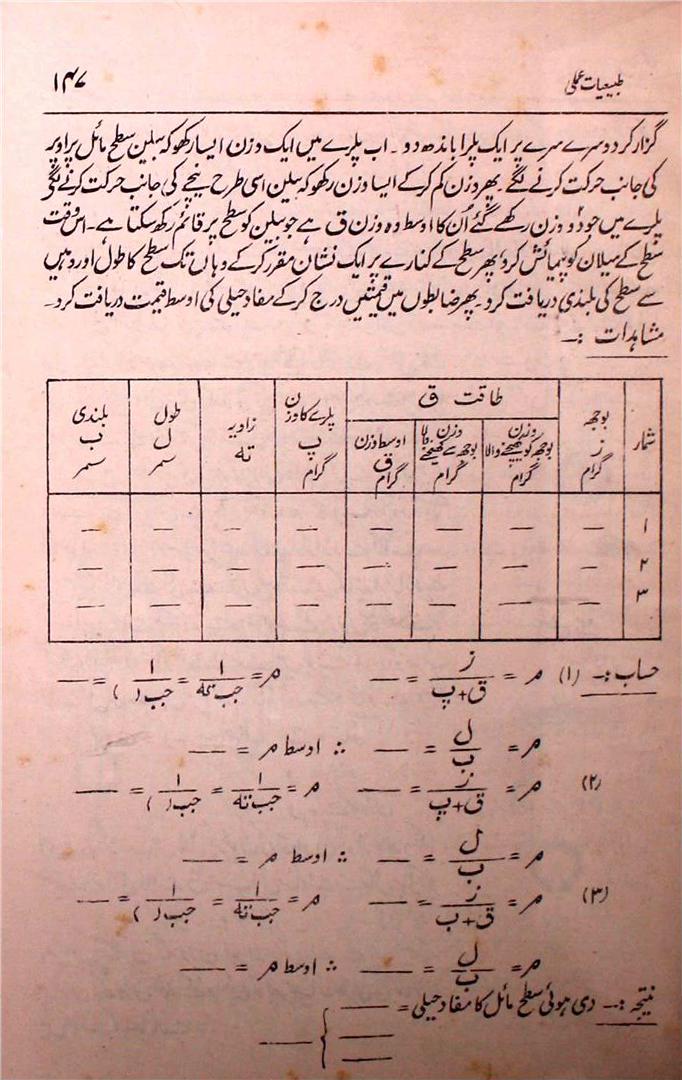 طبیعیات عملی ۱۴۷
گزار کر دوسرے سرے پر ایک پلڑا باندھ دو۔ اب پلڑے میں ایک وزن ایسا رکھو کہ بیلن سطح مائل پر اوپر
کی جانب حرکت کرنے لگے۔ پھر وزن کم کرکے ایسا وزن رکھو کہ بیلن اسی طرح نیچے کی جانب حرکت کرنے لگے
پلڑے میں جو دو وزن رکھے گئے اُن کا اوسط وہ وزن ق ہے جو بیلن کو سطح پر قائم رکھ سکتا ہے۔ اس وقت
سطح کے میلان کو پیمائش کرو پھر سطح کے کنارے پر ایک نشان مقرر کرکے وہاں تک سطح کا طول اور وہیں
سے سطح کی بلندی دریافت کرو۔ پھر ضابطوں میں قیمتیں درج کرکے مفاد حیلی کی اوسط قیمت دریافت کرو۔
مشاہدات :۔
شمار | بوجھ ز گرام | طاقت ق | پلڑے کا وزن پ گرام | زاویہ تہ | طول ل سمر | بلندی ب سمر
وزن بوجھ کو کھینچنے والا گرام | وزن بوجھ سے کھینچنے کا گرام | اوسط وزن ق گرام
۱ — — — — — — — —
۲ — — — — — — — —
۳ — — — — — — — —
حساب :۔ (۱) م = ز / ق+پ = — م = ۱ / جب تہ = ۱ / جب ( ) = —
م = ل / ب = — ∴ اوسط م = —
(۲) م = ز / ق+پ = — م = ۱ / جب تہ = ۱ / جب ( ) = —
م = ل / ب = — ∴ اوسط م = —
(۳) م = ز / ق+ب = — م = ۱ / جب تہ = ۱ / جب ( ) = —
م = ل / ب = — ∴ اوسط م = —
نتیجہ :۔ دی ہوئی سطح مائل کا مفاد حیلی = — — — } —